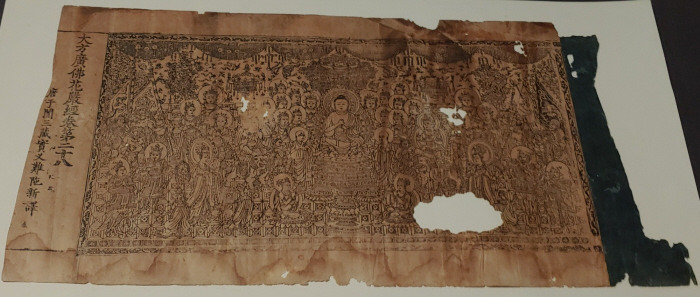 大方廣佛花嚴經卷第二十八
唐于闐三藏實叉難陁新譯